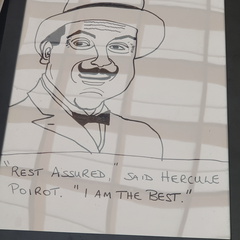 "REST ASSURED," SAID HERCULE
POIROT. "I AM THE BEST."